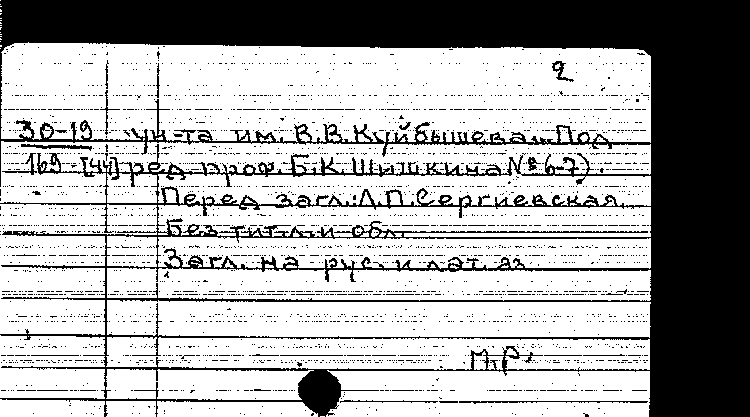 2
30-19 ун-та им. В.В.Куйбышева... Под
169-[44] ред. проф. Б.К.Шишкина № 6-7).
Перед загл.: Л.П.Сергиевская.
Без тит.л. и обл.
Загл. на рус. и лат. яз.
М.Р.